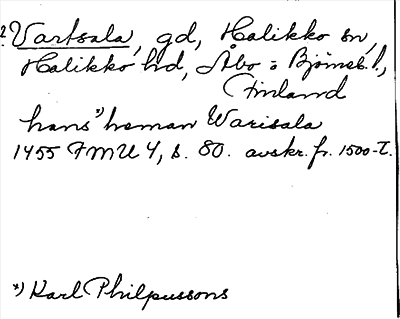 Vartsala, gd, Halikko sn,
Halikko hd, Åbo o Björneb. l.,
Finland
hans*) heman Warisala
1455 FMU 4, s. 80. avskr. fr. 1500-t.
*) Karl Philpussons